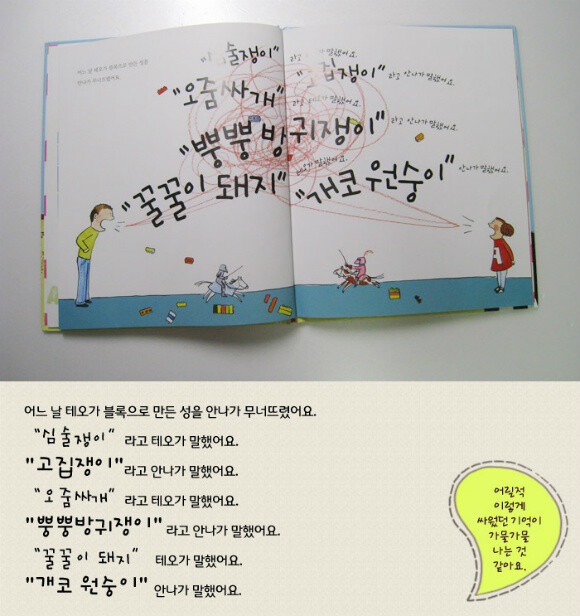 어느 날 테오가 블록으로 만든 성을
안나가 무너뜨렸어요.
"심술쟁이" 라고 테오가 말했어요.
"고집쟁이" 라고 안나가 말했어요.
"오줌싸개" 라고 테오가 말했어요.
"뿡뿡 방귀쟁이" 라고 안나가 말했어요.
"꿀꿀이 돼지" 테오가 말했어요.
"개코 원숭이" 안나가 말했어요.
어느 날 테오가 블록으로 만든 성을 안나가 무너뜨렸어요.
"심술쟁이" 라고 테오가 말했어요.
"고집쟁이"라고 안나가 말했어요.
"오줌싸개" 라고 테오가 말했어요.
"뿡뿡방귀쟁이" 라고 안나가 말했어요.
"꿀꿀이 돼지" 테오가 말했어요.
"개코 원숭이" 안나가 말했어요.
어릴적
이렇게
싸웠던 기억이
가물가물
나는 것
같아요.